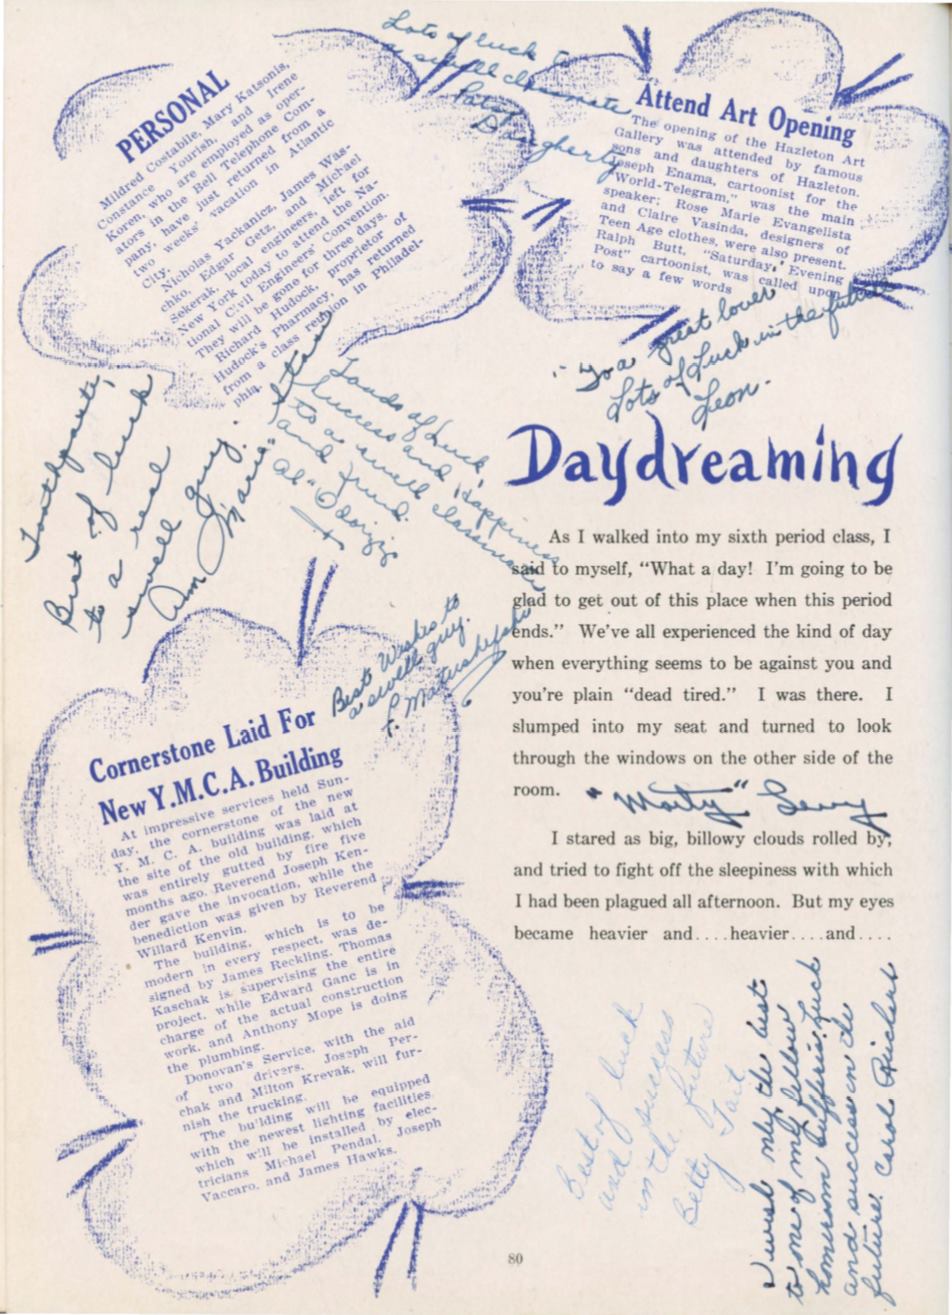 PERSONAL
Mildred Costabile, Mary Katsonis,
Constance Yourish, and Irene
Koren, who are employed as oper-
ators in the Bell Telephone Com-
pany, have just returned from a
two weeks' vacation in Atlantic
City.
Nicholas Yackanicz, James Was-
hko, Edgar Getz, and Michael
Sekerak, local engineers, left for
New York today to attend the Na-
tional Civil Engineers' Convention.
They will be gone for three days.
Richard Hudock, proprietor of
Hudock's Pharmacy, has returned
from a class reunion in Philadel-
phia.
Lots of luck to
a swell classmate
Patsy
Daugherty
Attend Art Opening
The opening of the Hazleton Art
Gallery was attended by famous
sons and daughters of Hazleton.
Joseph Enama, cartoonist for the
"World-Telegram," was the main
speaker; Rose Marie Evangelista
and Claire Vasinda, designers of
Teen Age clothes, were also present.
Ralph Butt, "Saturday Evening
Post" cartoonist, was called upon
to say a few words
"To a great lover"
Lots of Luck in the future
Leon.
Best of luck
to a real
swell guy.
Ann Marie
Loads of Luck,
success and happiness
to a swell classmate
and friend.
"Al"
Best Wishes to
a swell guy.
Cornerstone Laid For
New Y.M.C.A. Building
At impressive services held Sun-
day, the cornerstone of the new
Y. M. C. A. building was laid at
the site of the old building, which
was entirely gutted by fire five
months ago. Reverend Joseph Ken-
der gave the invocation, while the
benediction was given by Reverend
Willard Kenvin.
The building, which is to be
modern in every respect, was de-
signed by James Reckling. Thomas
Kaschak is supervising the entire
project, while Edward Ganc is in
charge of the actual construction
work, and Anthony Mope is doing
the plumbing.
Donovan's Service, with the aid
of two drivers, Joseph Per-
chak and Milton Krevak, will fur-
nish the trucking.
The building will be equipped
with the newest lighting facilities,
which will be installed by elec-
tricians Michael Pendal, Joseph
Vaccaro, and James Hawks.
Daydreaming
As I walked into my sixth period class, I
said to myself, "What a day! I'm going to be
glad to get out of this place when this period
ends." We've all experienced the kind of day
when everything seems to be against you and
you're plain "dead tired." I was there. I
slumped into my seat and turned to look
through the windows on the other side of the
room.
"Morty" Levy
I stared as big, billowy clouds rolled by,
and tried to fight off the sleepiness with which
I had been plagued all afternoon. But my eyes
became heavier and....heavier....and....
Best of luck
and success
in the future
Betty Tait
I wish only the best
to one of my fellow
homeroom sufferers. Luck
and success in the
future. Carol
80